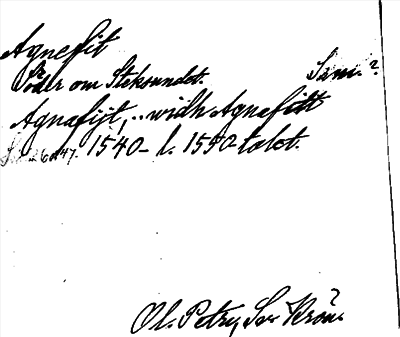 Agnefit
Söder om Steksundet. Sam.?
Agnafijt, .. widh Agnafitt
1540- l. 1550-talet.
Ol. Petry Sv. Krön.